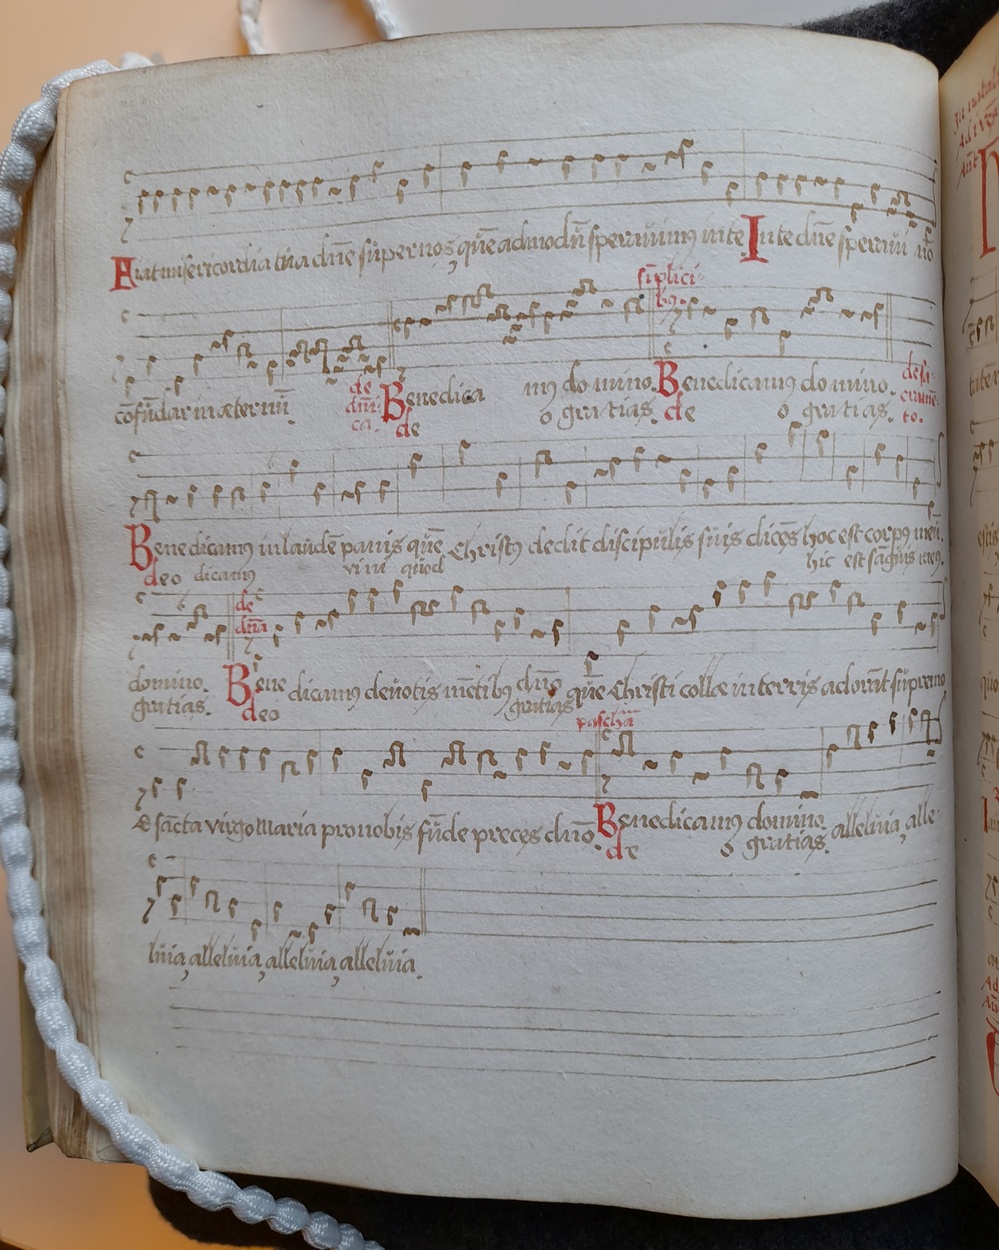 Fiat misericordia tua dn̄e super nos, quēadmodū speravimꝯ in te In te dn̄e speravi nō
cōfūdar in æternū de dn̄i ca. Benedica mꝯ domino. simplici bꝯ. Benedicamꝯ domino. de sa cramē to.
de o gratias. de o gratias.
Benedicamꝯ in laudē panis quē Christꝯ dedit discipulis suis dicēs hoc est corpꝯ meū.
deo dicamꝯ vini quod hic est saguis meꝯ.
domino. de dn̄a Benedicamꝯ devotis mētibꝯ dn̄o quē Christi collæ in terris adorāt supremo
gratias. deo gratias
paschā
& sancta virgo Maria pro nobis fūde preces dn̄o. Benedicamꝯ domino. alleluia, alle-
de o gratias.
luia, alleluia, alleluia, alleluia.